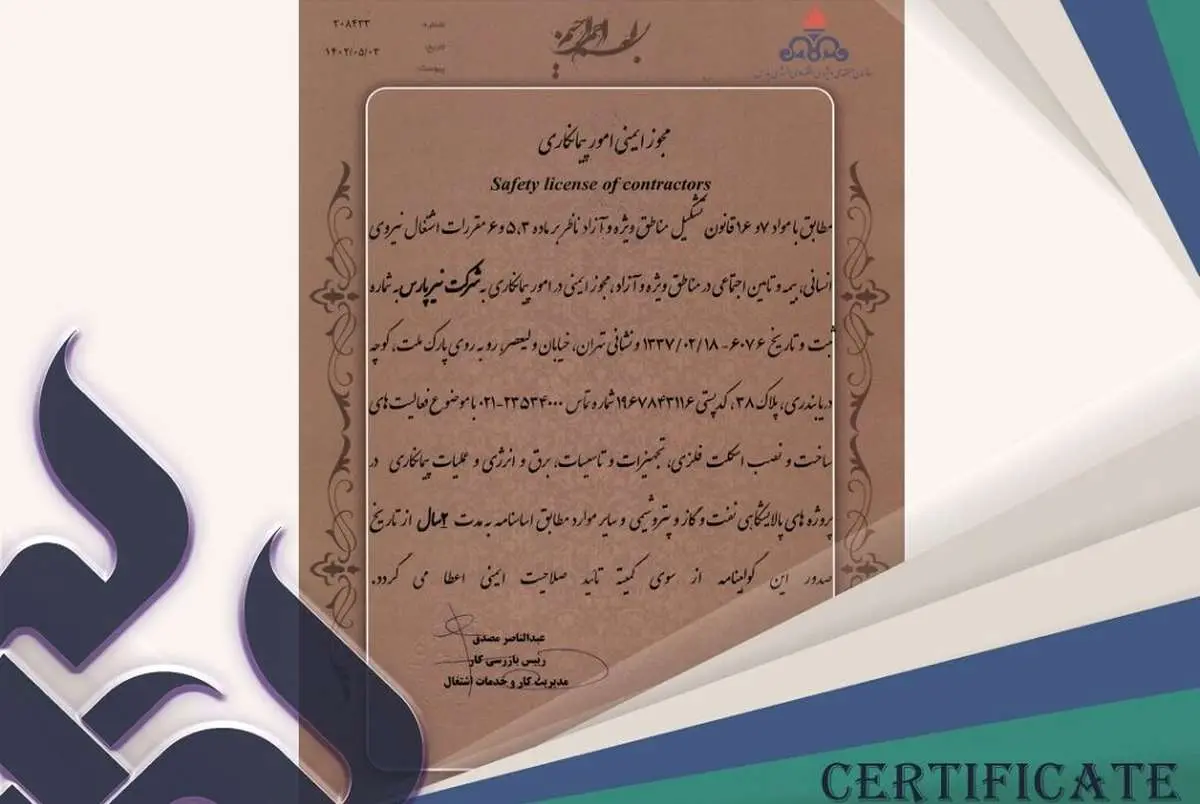 شماره: ۲۰۸۴۳۳
تاریخ: ۱۴۰۲/۰۵/۰۳
پیوست:
مجوز ایمنی امور پیمانکاری
Safety license of contractors
مطابق با مواد ۷ و ۱۶ قانون تشکیل مناطق ویژه و آزاد ناظر بر ماده ۵،۳ و ۶ مقررات اشتغال نیروی
انسانی، بیمه و تامین اجتماعی در مناطق ویژه و آزاد، مجوز ایمنی در امور پیمانکاری به شرکت نیرپارس به شماره
ثبت و تاریخ ۶۰۷۶- ۱۳۳۷/۰۲/۱۸ و نشانی تهران، خیابان ولیعصر، رو به روی پارک ملت، کوچه
دریابندری، پلاک ۳۸، کدپستی ۱۹۶۷۸۴۳۱۱۶ شماره تماس ۲۳۵۳۴۰۰۰-۰۲۱ با موضوع فعالیت های
ساخت و نصب اسکلت فلزی، تجهیزات و تاسیسات، برق و انرژی و عملیات پیمانکاری در
پروژه های پالایشگاهی نفت و گاز و پتروشیمی و سایر موارد مطابق اساسنامه به مدت ۲سال از تاریخ
صدور این گواهینامه از سوی کمیته تائید صلاحیت ایمنی اعطا می گردد.
عبدالناصر مصدق
رییس بازرسی کار
مدیریت کار و خدمات اشتغال
CERTIFICATE